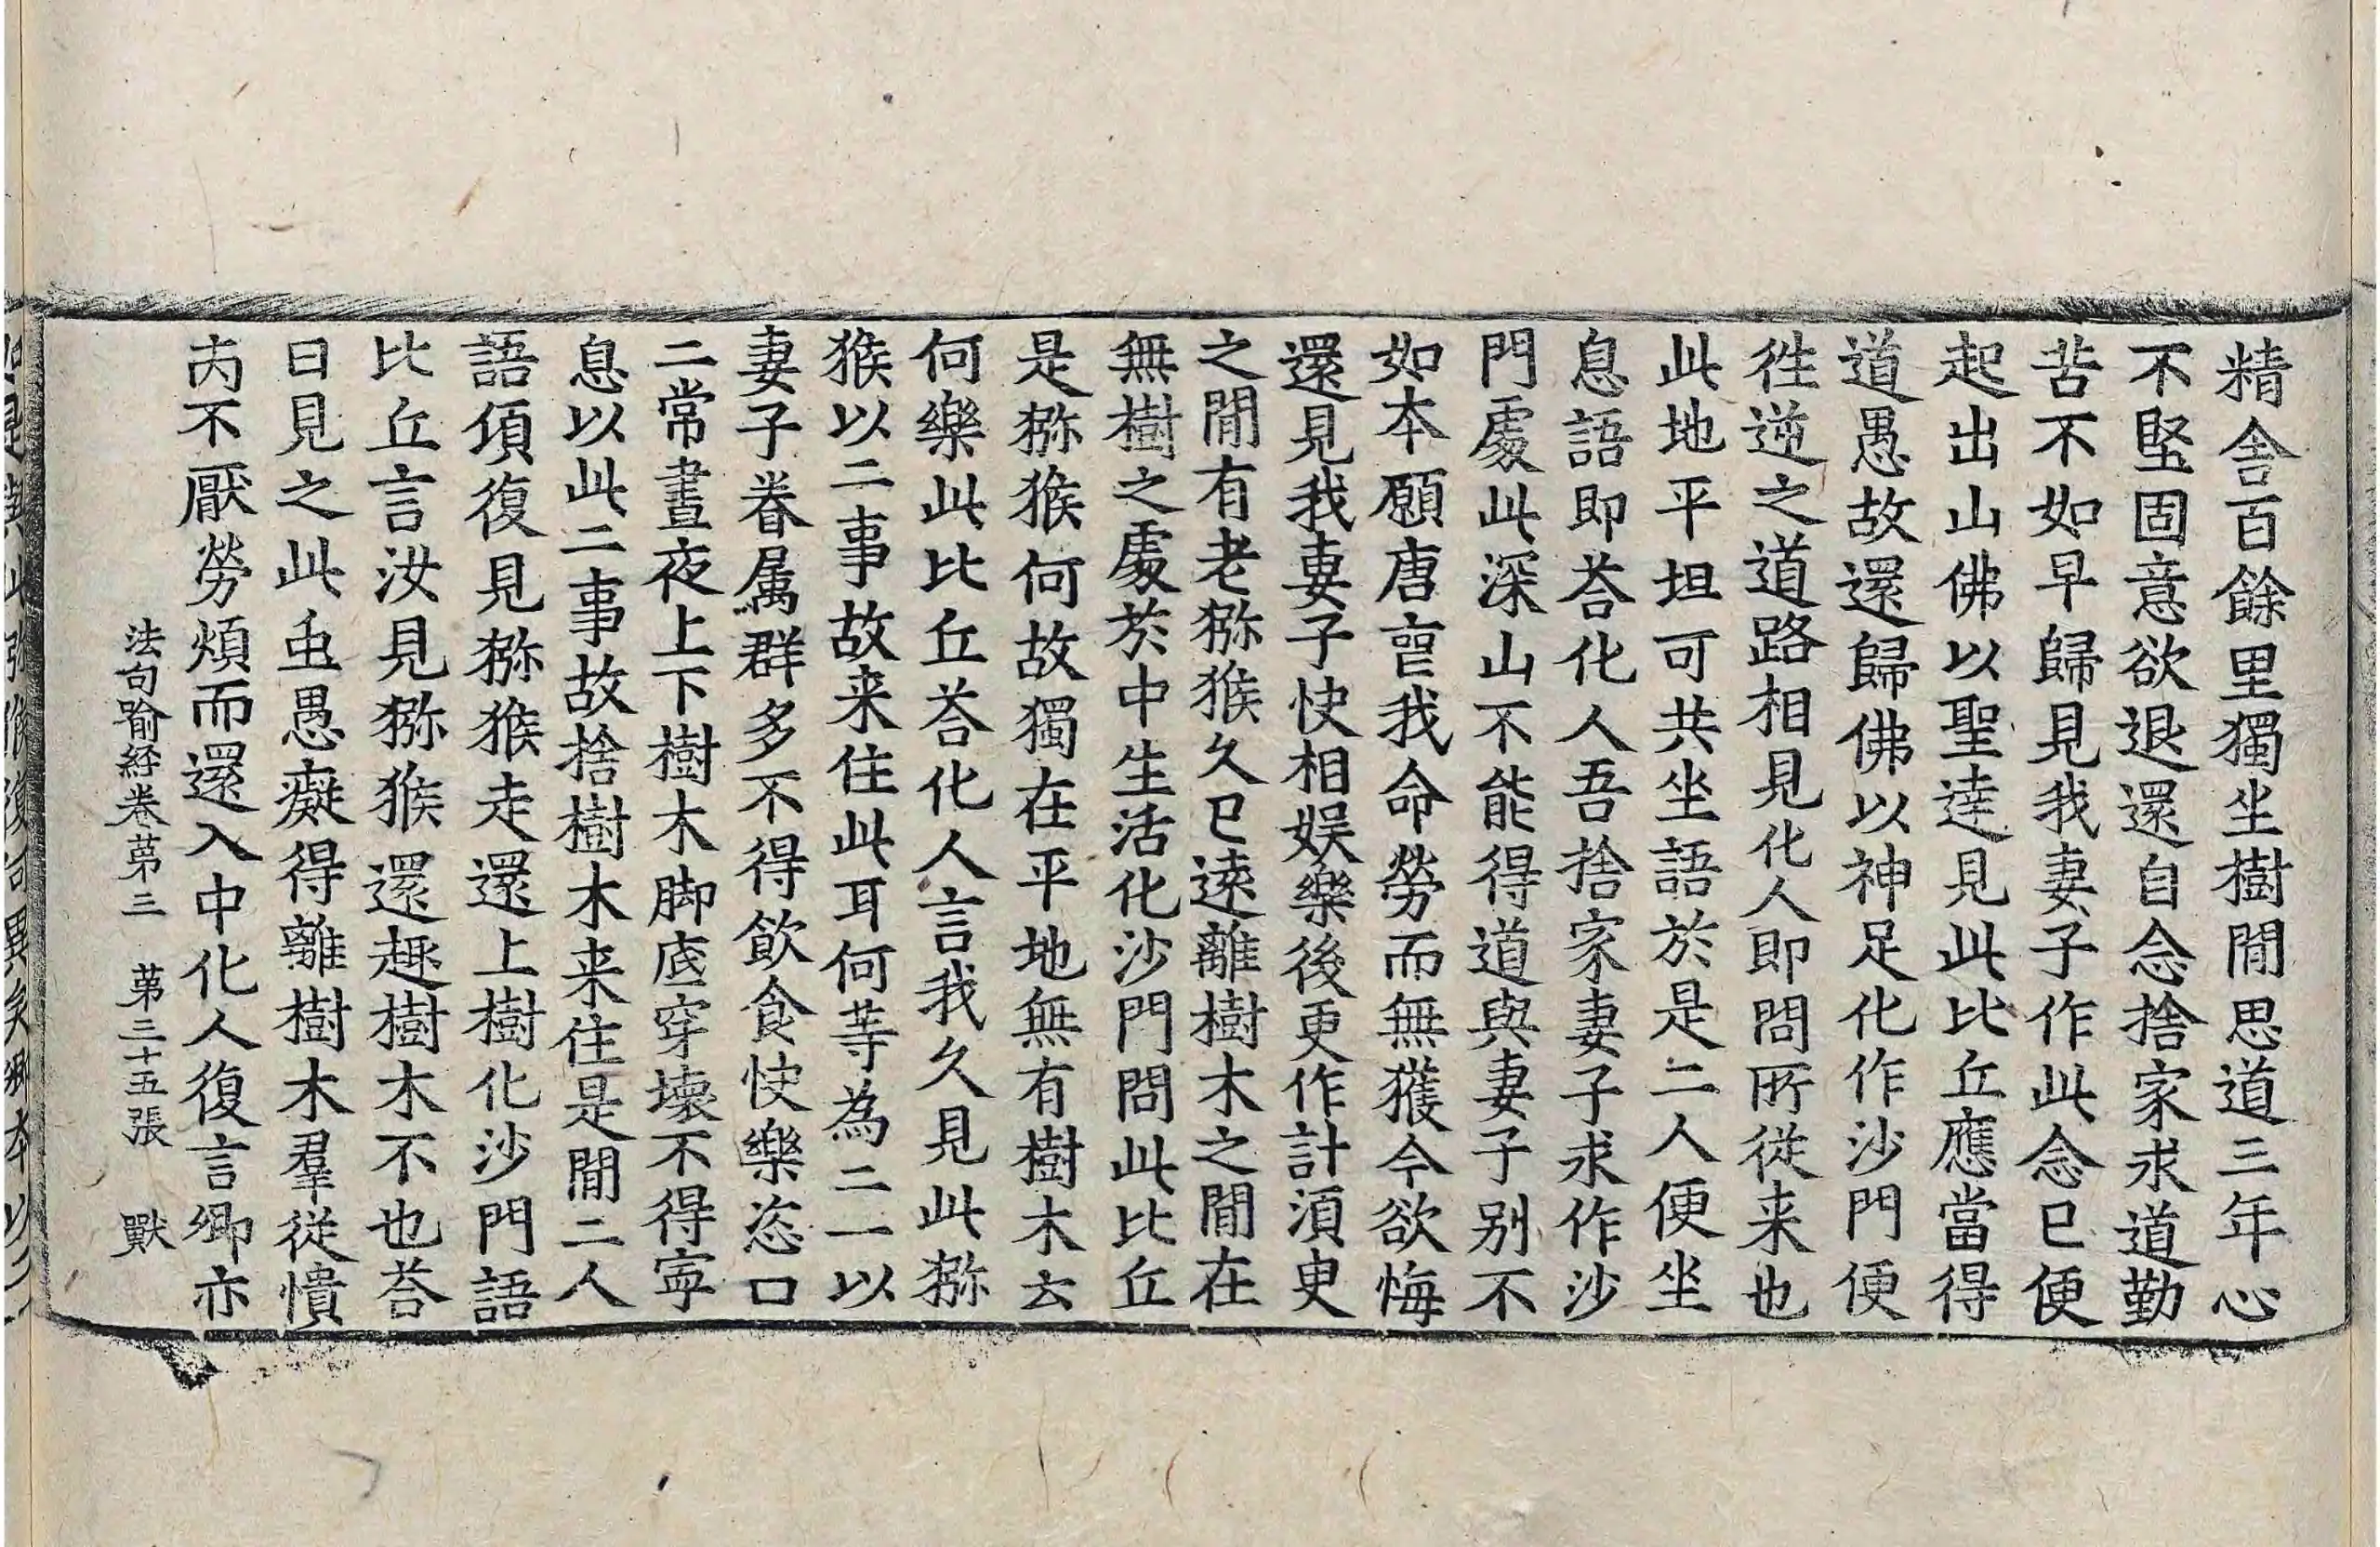 精舍百餘里獨坐樹閒思道三年心
不堅固意欲退還自念捨家求道勤
苦不如早歸見我妻子作此念已便
起出山佛以聖達見此比丘應當得
道愚故還歸佛以神足化作沙門便
徃逆之道路相見化人即問所從来也
此地平坦可共坐語於是二人便坐
息語即荅化人吾捨家妻子求作沙
門處此深山不能得道與妻子别不
如本願唐喪我命勞而無獲今欲悔
還見我妻子快相娱樂後更作計須臾
之閒有老猕猴久已遠離樹木之閒在
無樹之處於中生活化沙門問此比丘
是猕猴何故獨在平地無有樹木云
何樂此比丘荅化人言我久見此猕
猴以二事故来住此耳何等為二一以
妻子眷属群多不得飲食快樂恣口
二常晝夜上下樹木脚底穿壞不得寧
息以此二事故捨樹木来住是閒二人
語頃復見猕猴走還上樹化沙門語
比丘言汝見猕猴還趣樹木不也荅
曰見之此虫愚癡得離樹木羣從憒
丙不厭勞煩而還入中化人復言卿亦
法句喻経卷苐三 苐三十五張 獸